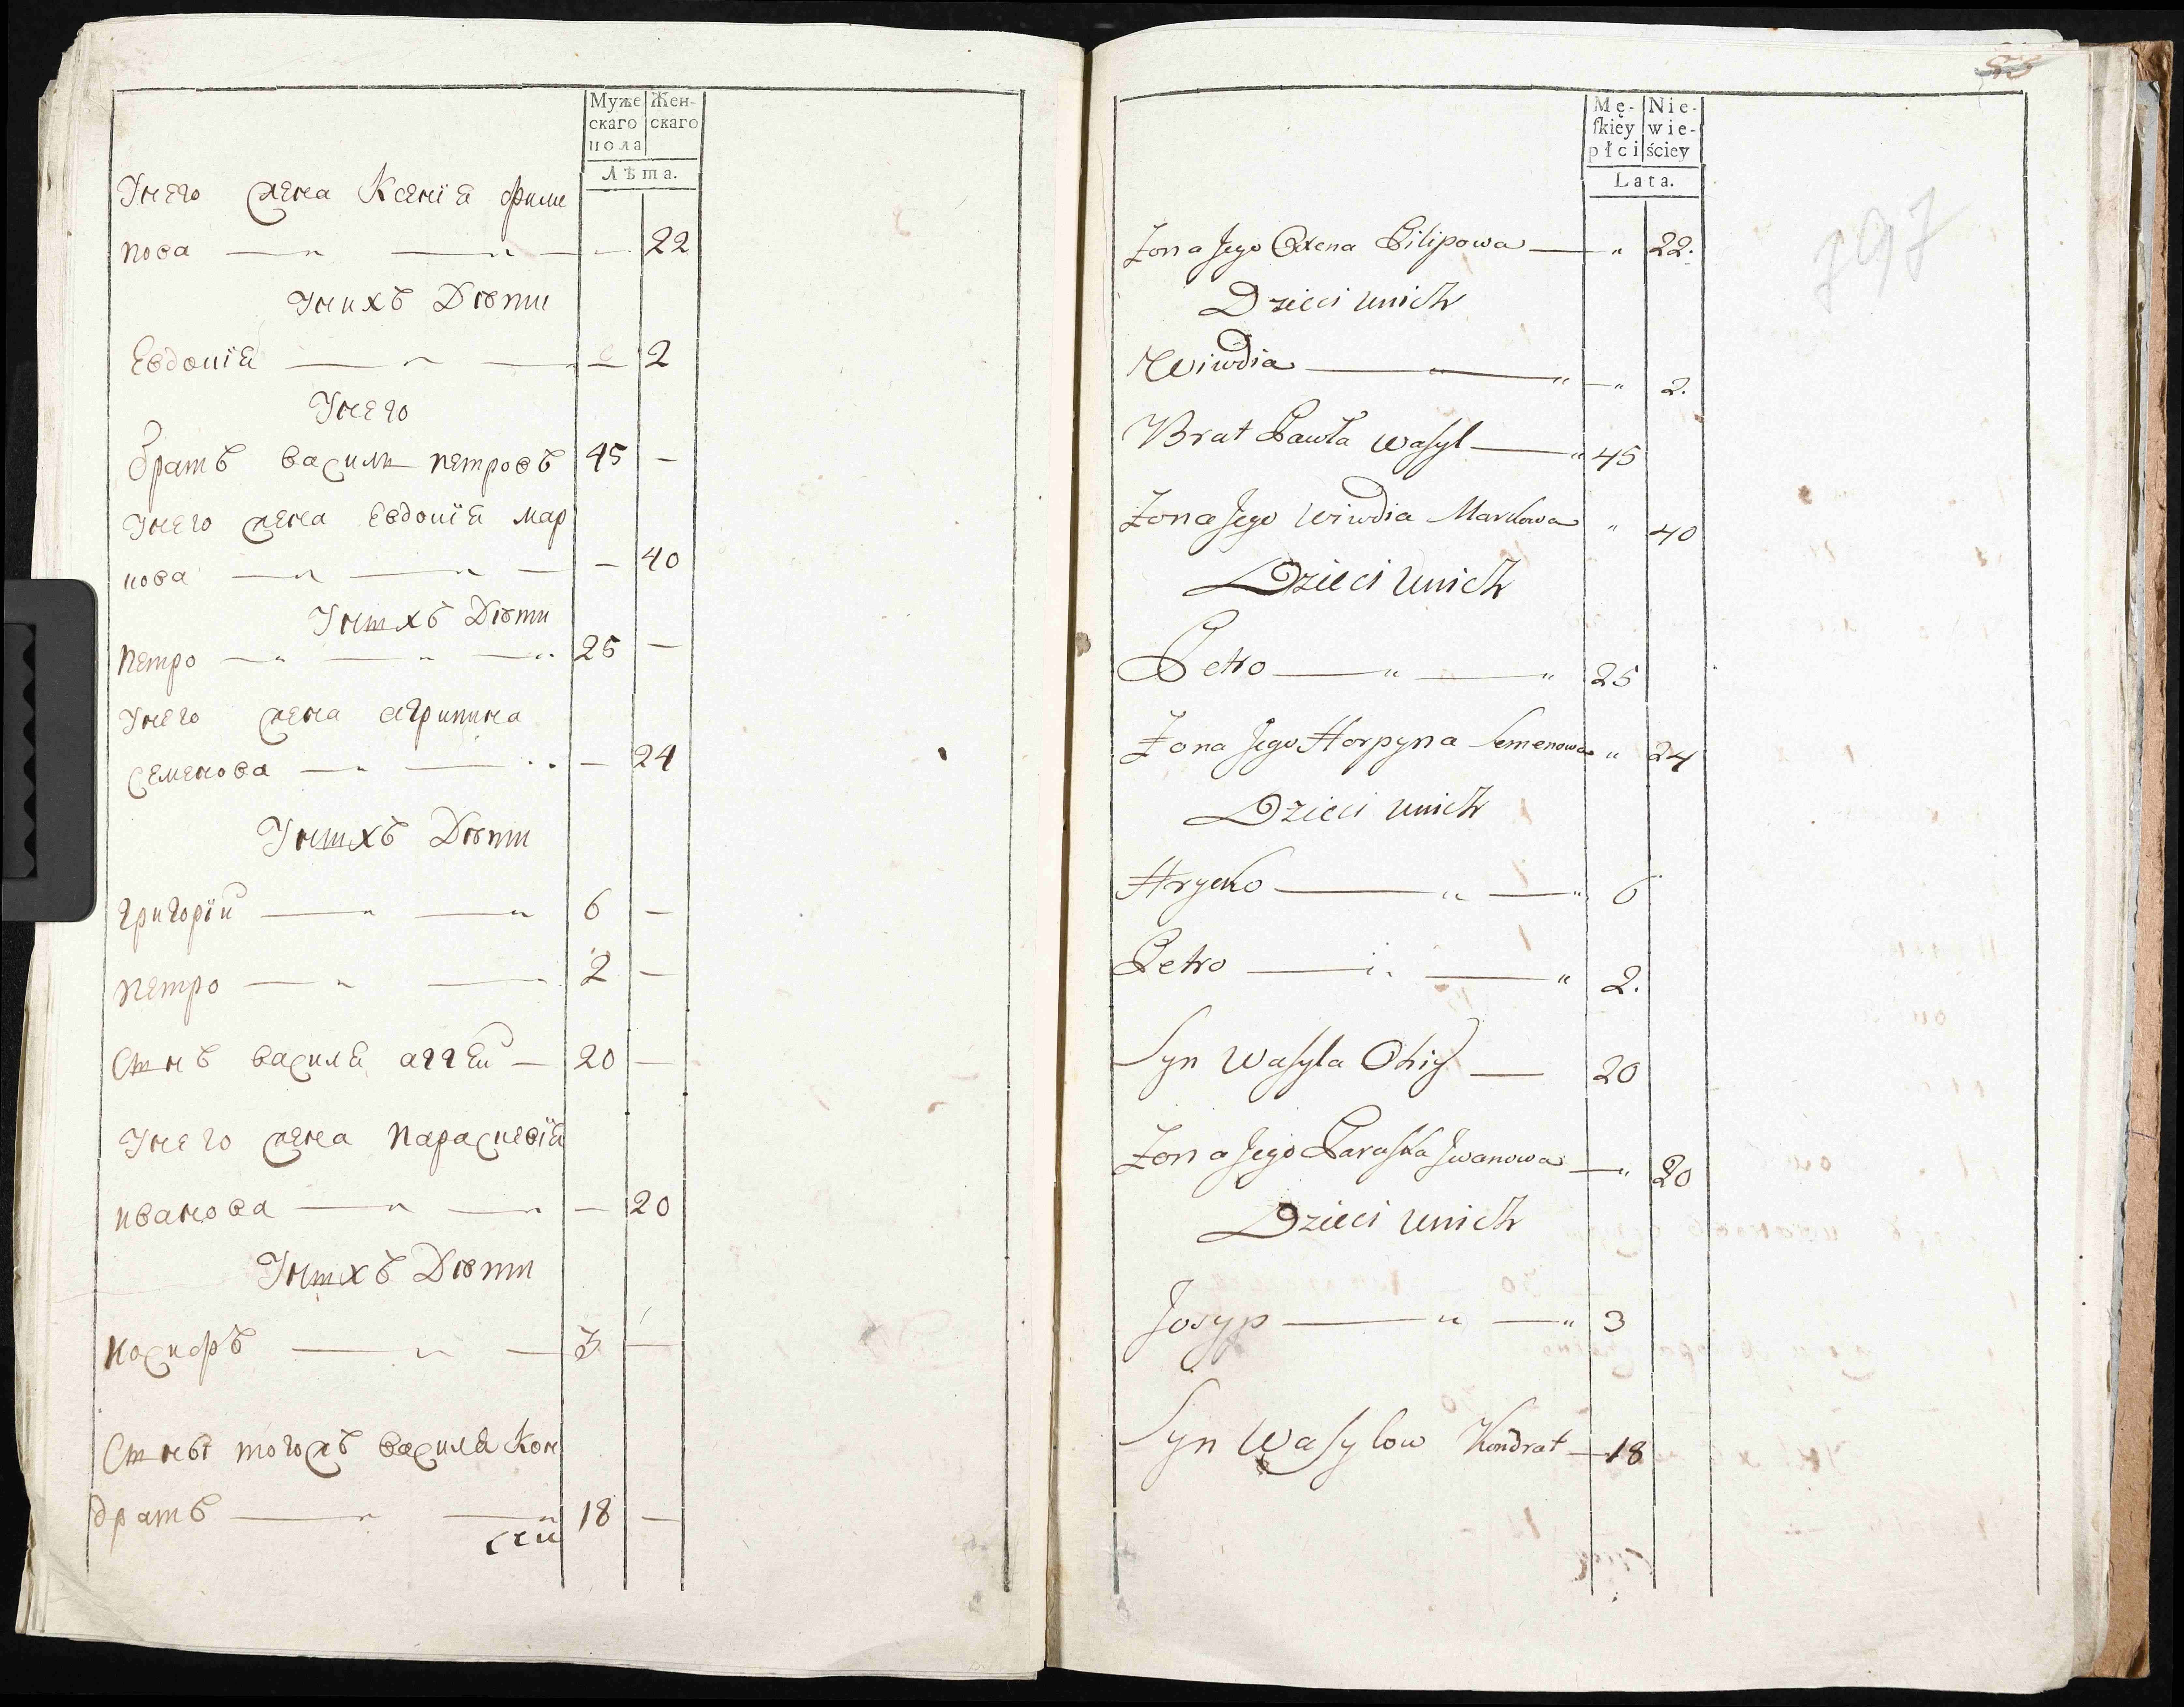 Муже
скаго
пола
Жен-
скаго
Лѣта.
Унего жена Ксенiя фили
пова — — — 22
Унихъ Дѣти
Евдокiя — — — 2
Унего
братъ василь петровъ 45 —
Унего жена Евдокiя мар
кова — — — 40
Унихъ Дѣти
петро — — — 25 —
Унего жена агрипина
семенова — — — 24
Унихъ Дѣти
григорiй — — 6 —
петро — — 2 —
Сынъ василя аггей — 20 —
Унего жена параскевiя
иванова — — — 20
Унихъ Дѣти
иосифъ — — 3 —
Сынъ тогожъ василя Кон
дратъ — — 18 —
58
Mę-
ſkiey
płci
Nie-
wie-
ściey
Lata.
797
Żona Jego Oxena Pilipowa — " 22.
Dzieci unich
Wiwdia — " — " 2.
Brat Pawła Wasyl — " 45
Żona Jego Wiwdia Markowa " 40
Dzieci unich
Petro — " — " 25
Żona Jego Horpyna Semenowa " 24
Dzieci unich
Hryćko — " — " 6
Petro — " — " 2.
Syn Wasyla Ohiy — 20
Żona Jego Paraska Jwanowa — " 20
Dzieci unich
Josyp — " — " 3
Syn Wasylow Kondrat — 18